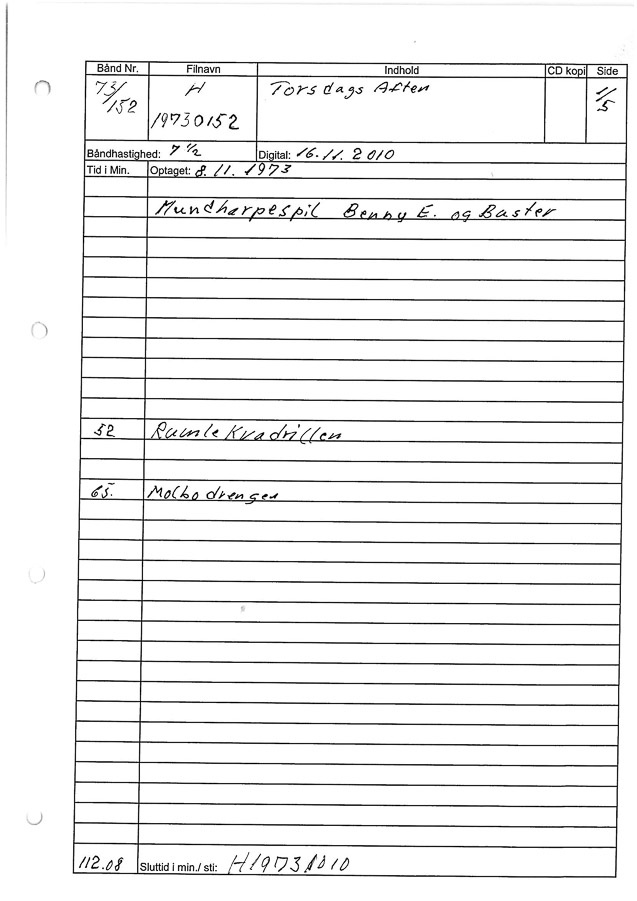 Bånd Nr. Filnavn Indhold CD kopi Side
73/152 H Torsdags Aften 1/5
19730152
Båndhastighed: 7 1/2 Digital: 16.11.2010
Tid i Min. Optaget: 8.11.1973
Mundharpespil Benny E. og Buster
52 Rumle Kvadrillen
65. Molbo drengen
112.08 Sluttid i min./ sti: